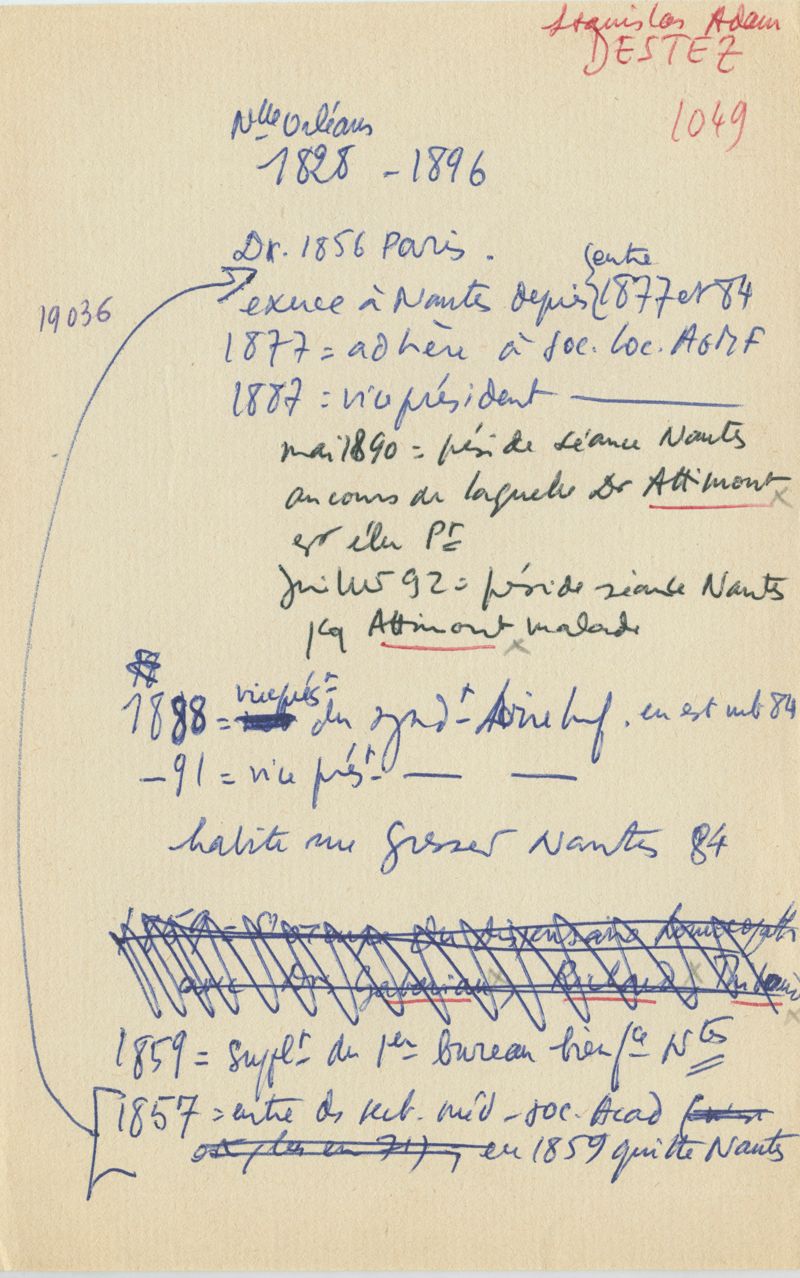 Stanislas Adam
DESTEZ
1049
Nlle Orléans
1828 - 1896
Dr. 1856 Paris.
entre
exerce à Nantes depuis 1877 et 84
19036
1877 = adhère à soc. loc. AGMF
1887 = vice président ———
mai 1890 = préside séance Nantes
au cours de laquelle Dr Attimont x
est élu Pt
Juillet 92 = préside séance Nantes
pcq Attimont x malade
vice prést
1888 = du synd t Loire Inf. en est mb 84
- 91 = vice prést — —
habite rue Gresset Nantes 84
1859 = s'occupe du dispensaire homéopath
avec Drs Gaborian x, Richard x,
1859 = suppl t du 1er bureau bienf ce Ntes
1857 = entre ds sect. méd - soc. Acad
en 1859 quitte Nantes